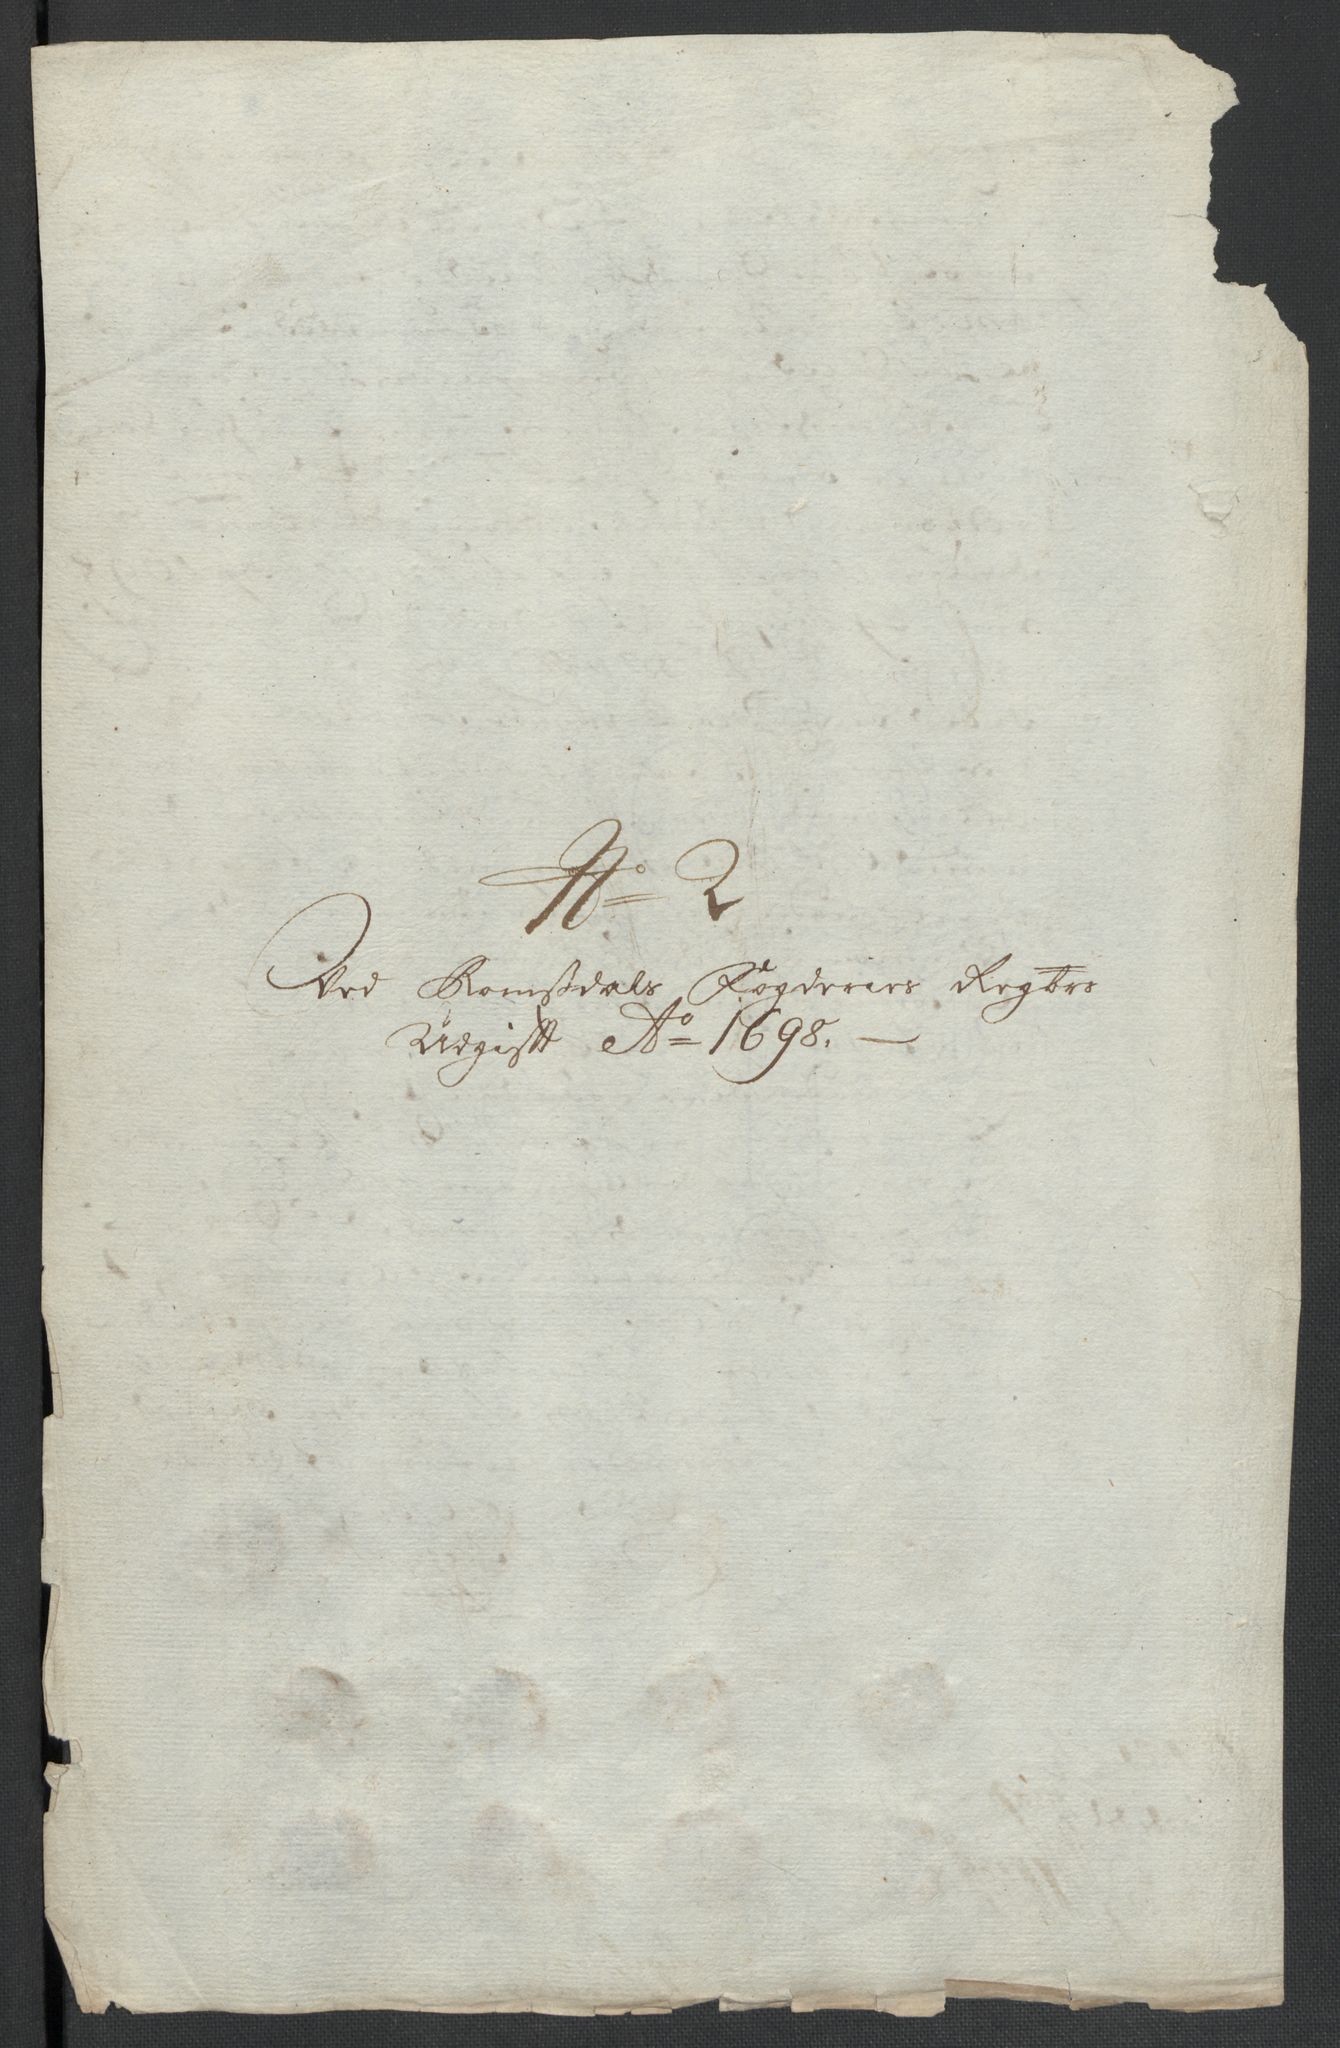 No 2
Ved Romsdals Fogderies Regtbs
Udgifft Ao 1698. —